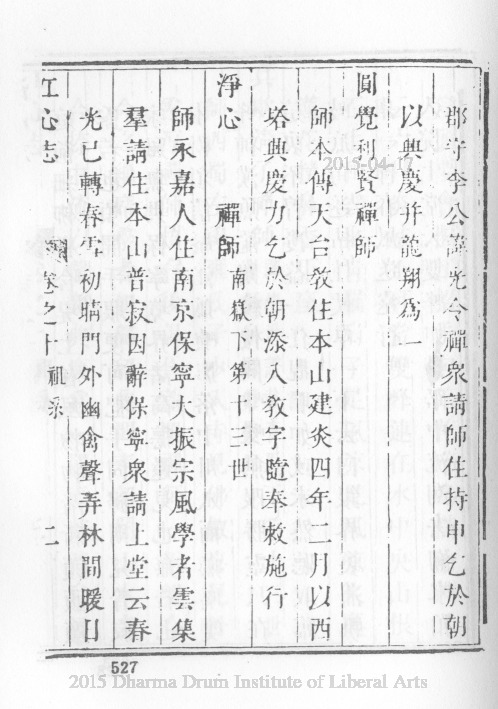 郡守李公諱光令禪衆請師住持申乞於朝
以興慶并龍翔爲一
圓覺利賢禪師
師本傳天台教住本山建炎四年二月以西
塔興慶力乞於朝添入教字隨奉敕施行
淨心 禪師南嶽下第十三世
師永嘉人住南京保寧大振宗風學者雲集
羣請住本山普寂因辭保寧衆請上堂云春
光已轉春雪初晴門外幽禽聲弄林間暖日
江心志 卷之十祖系 二
527
2015-04-17
2015 Dharma Drum Institute of Liberal Arts